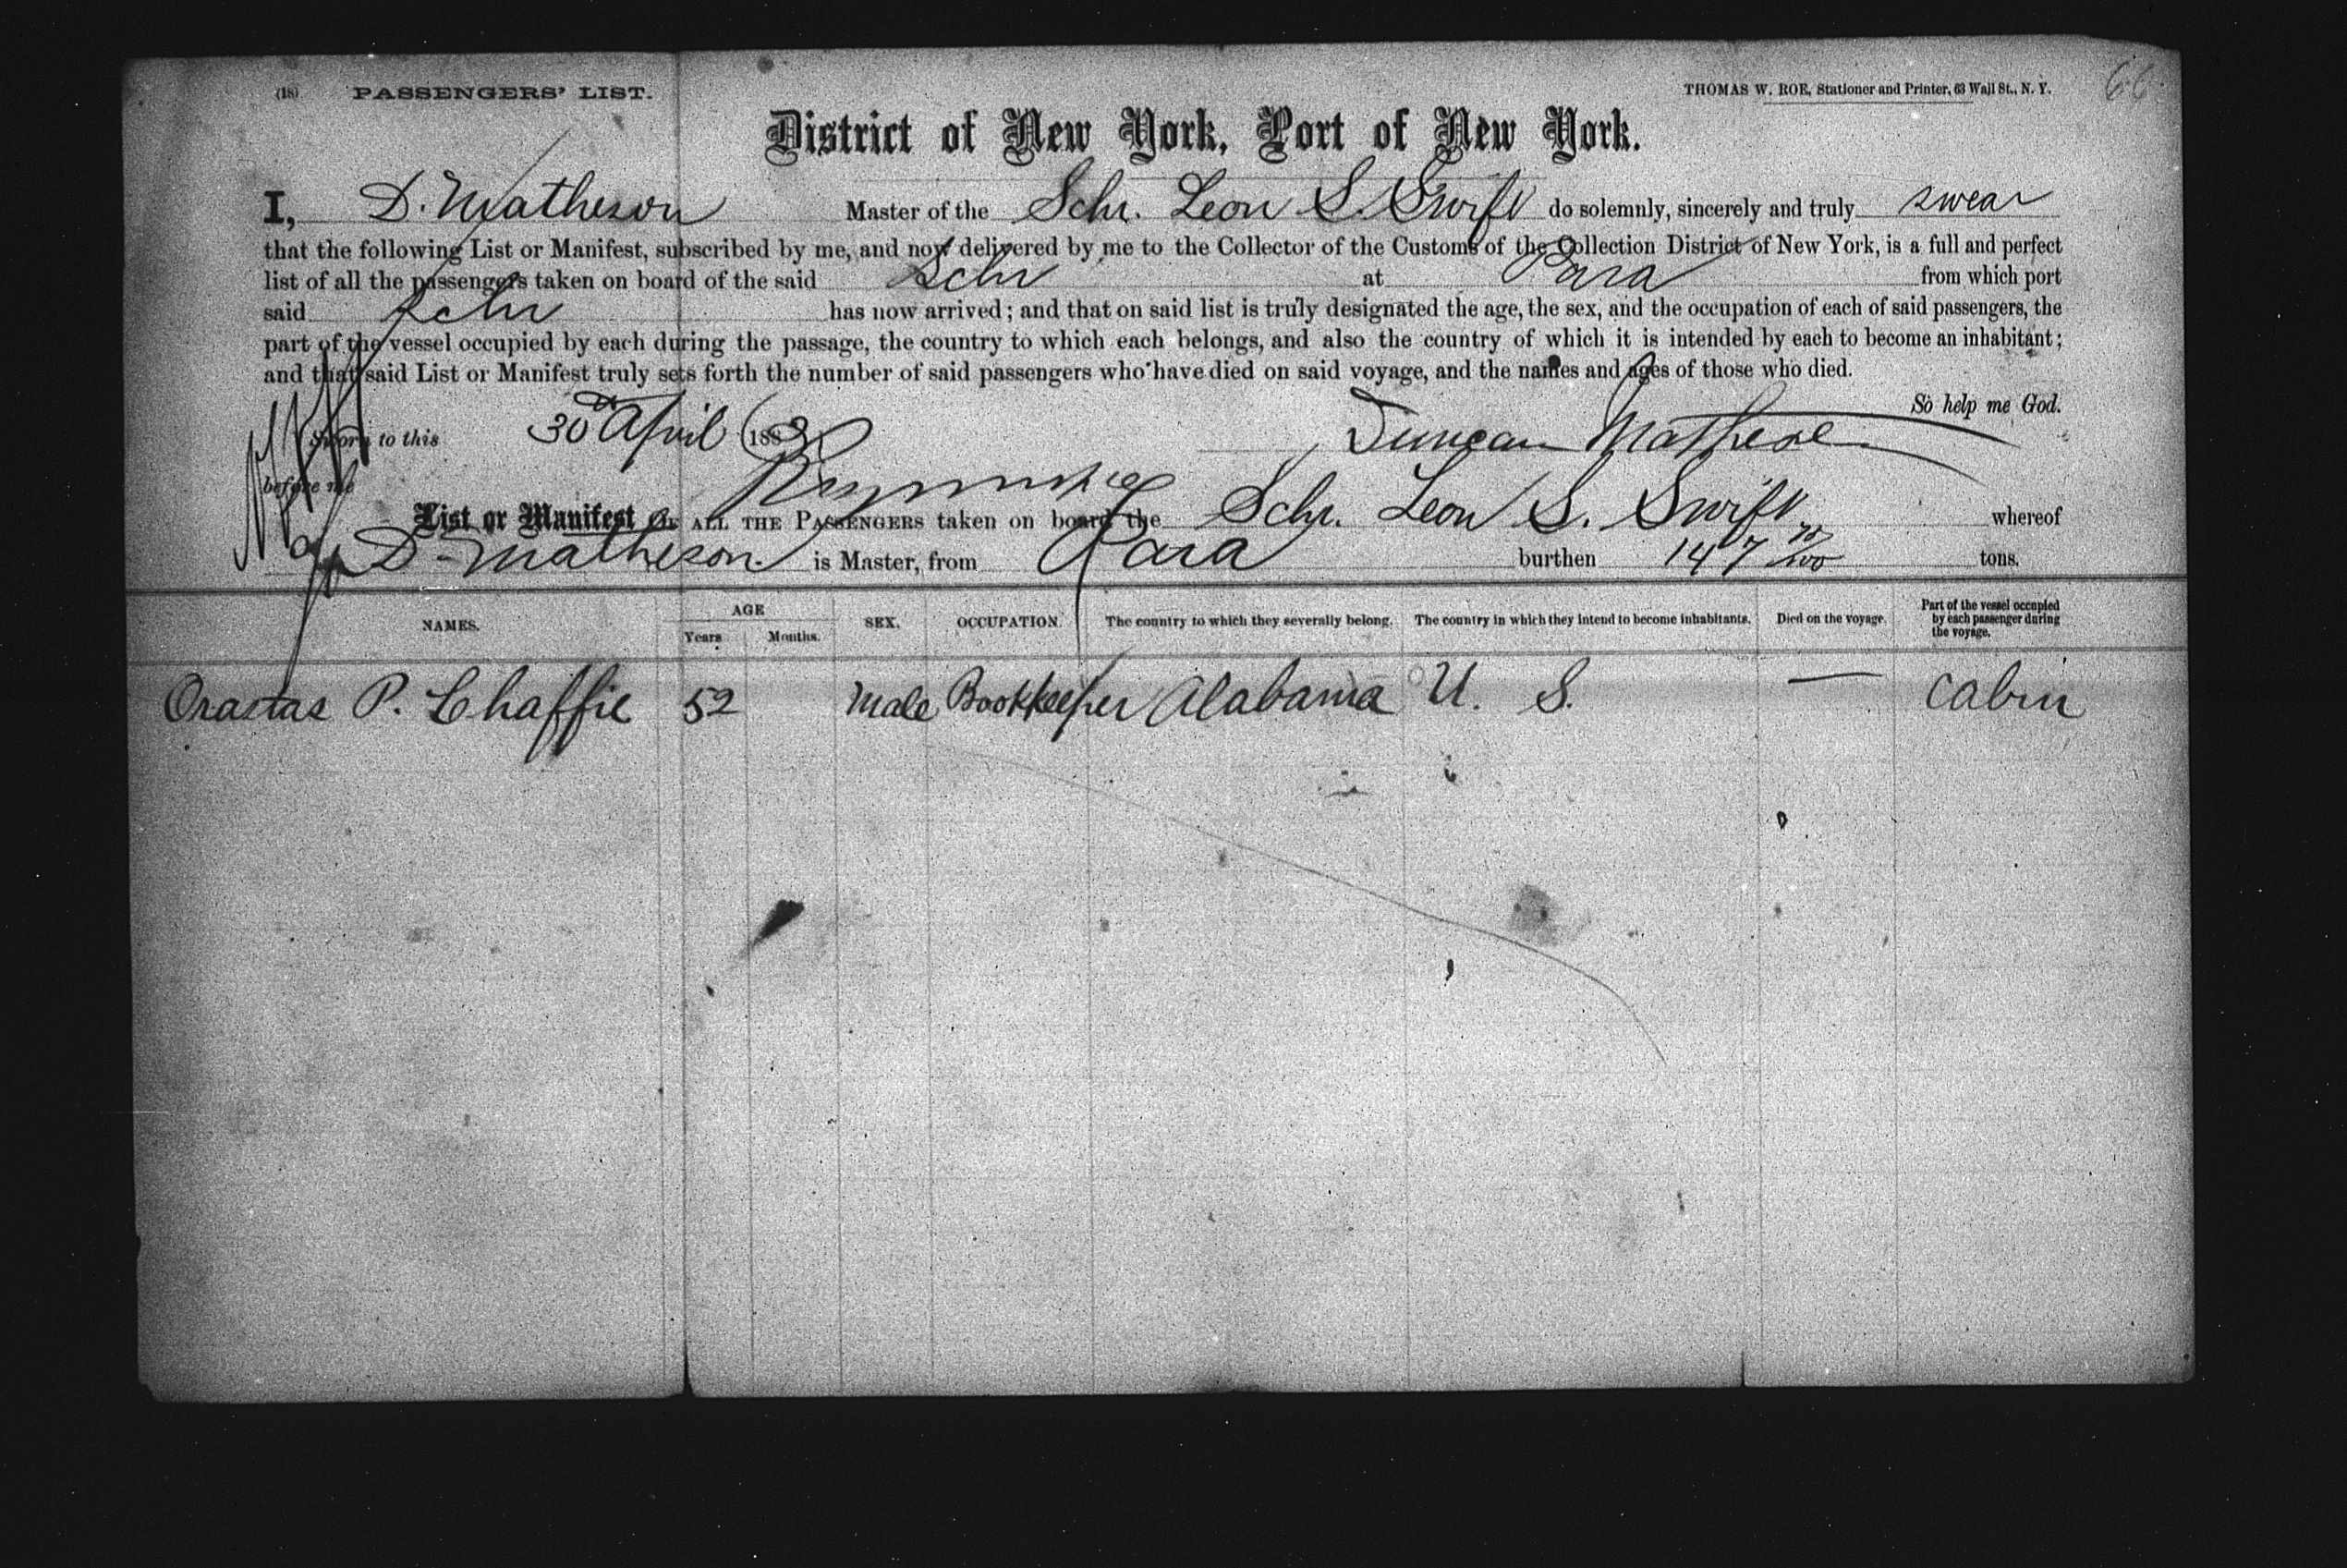 (18) PASSENGERS' LIST.
THOMAS W. ROE, Stationer and Printer, 63 Wall St., N. Y.
66
District of New York, Port of New York.
I, D. Matheson Master of the Schr. Leon S. Swift do solemnly, sincerely and truly swear
that the following List or Manifest, subscribed by me, and now delivered by me to the Collector of the Customs of the Collection District of New York, is a full and perfect
list of all the passengers taken on board of the said Schr at Para from which port
said Schr has now arrived; and that on said list is truly designated the age, the sex, and the occupation of each of said passengers, the
part of the vessel occupied by each during the passage, the country to which each belongs, and also the country of which it is intended by each to become an inhabitant;
and that said List or Manifest truly sets forth the number of said passengers who have died on said voyage, and the names and ages of those who died.
So help me God.
Sworn to this 30 April 188 Duncan Matheson
before me
List or Manifest OF ALL THE PASSENGERS taken on board the Schr. Leon S. Swift whereof
D. Matheson is Master, from Para burthen 147 tons.
NAMES. AGE Years Months. SEX. OCCUPATION. The country to which they severally belong. The country in which they intend to become inhabitants. Died on the voyage. Part of the vessel occupied by each passenger during the voyage.
Orastas P. Chaffie 52 Male Bookkeeper Alabama U. S. — Cabin